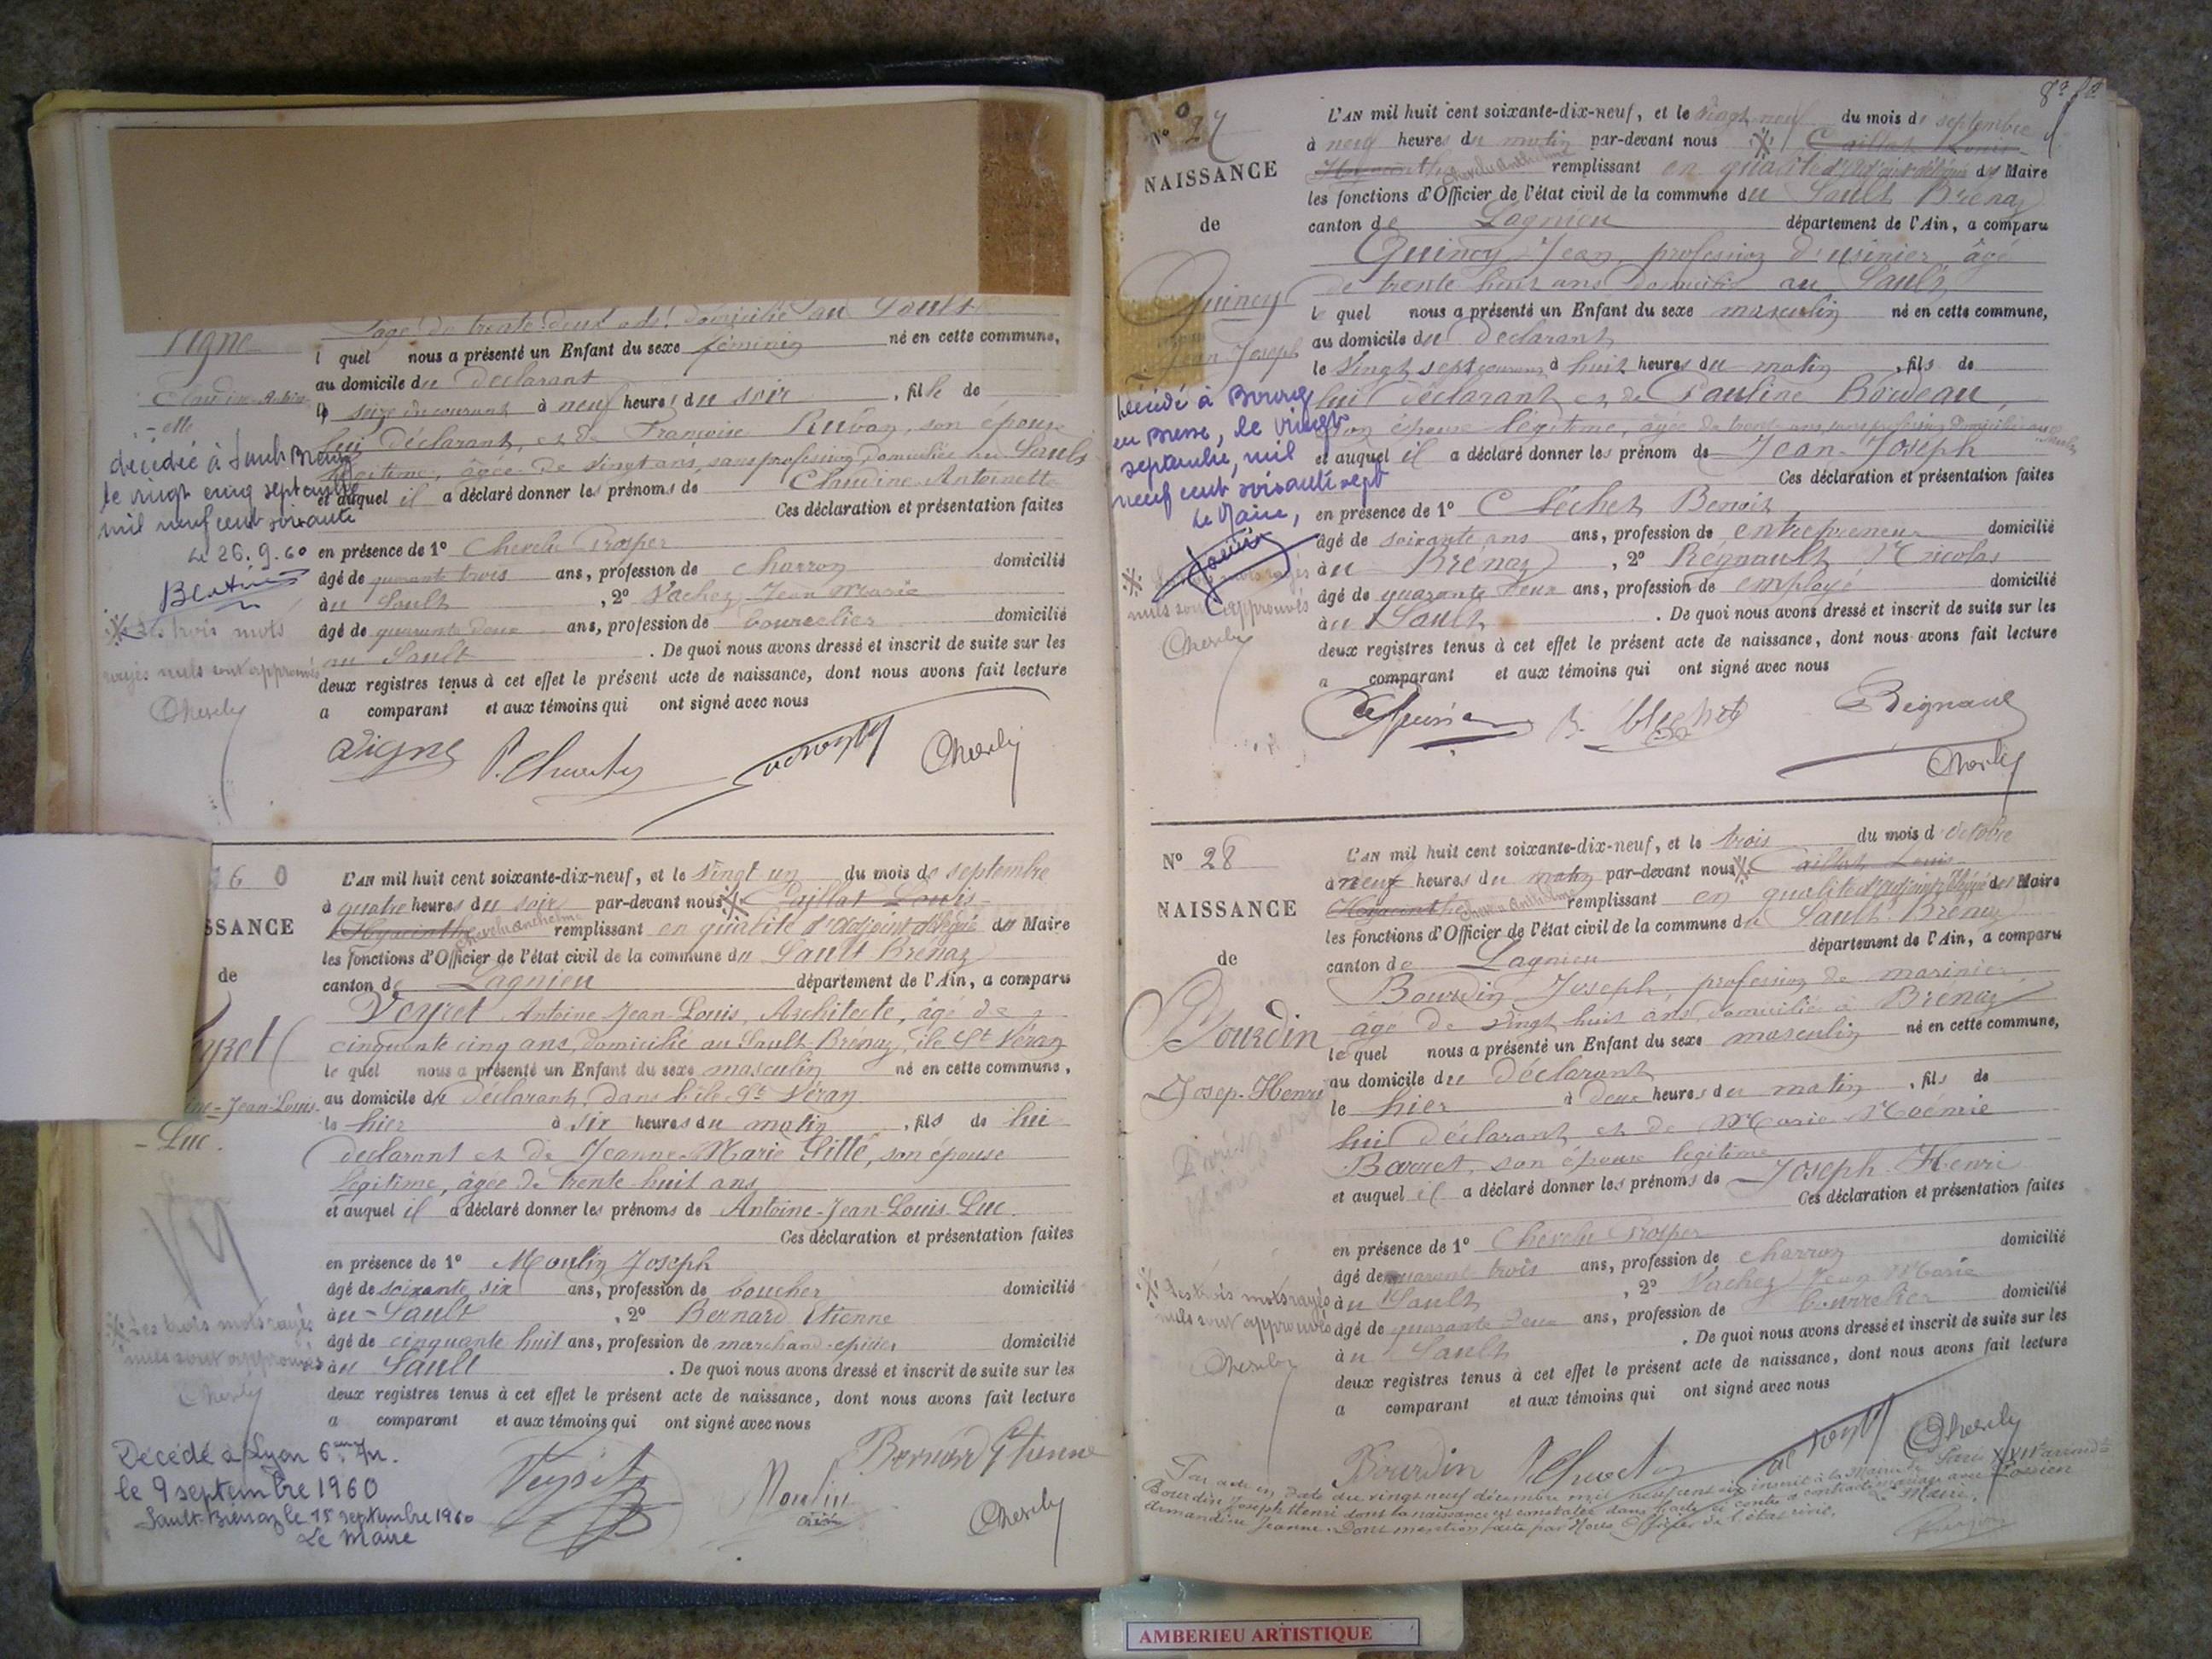 Vigne
âgé de trente deux ans, domicilié au Sault
l quel nous a présenté un Enfant du sexe féminin né en cette commune,
au domicile du déclarant
Claudine-Antoin-
-ette
le seize du courant à neuf heures du soir , fille de
lui déclarant, et de Françoise son épouse
légitime, âgée de vingt ans, sans profession, domiciliée au Sault
et auquel il a déclaré donner les prénoms de Claudine Antoinette
Ces déclaration et présentation faites
décédée à Sault Brénaz
le vingt cinq septembre
mil neuf cent soixante
Le 26.9.60
en présence de 1° Chervelu Prosper
âgé de quarante trois ans, profession de charron domicilié
au Sault , 2° Vachez Jean Marie
âgé de quarante deux ans, profession de bourrelier domicilié
au Sault . De quoi nous avons dressé et inscrit de suite sur les
deux registres tenus à cet effet le présent acte de naissance, dont nous avons fait lecture
a comparant et aux témoins qui ont signé avec nous
※ Les trois mots
rayés nuls sont approuvés
Vigne
6 0
SSANCE
de
yret
-Jean-Louis-
-Luc.
L'AN mil huit cent soixante-dix-neuf, et le vingt un du mois de septembre
à quatre heures du soir par-devant nous ※ Caillat Louis
Hyacinthe Chervelu Anthelme remplissant en qualité d'adjoint délégué du Maire
les fonctions d'Officier de l'état civil de la commune du Sault Brénaz
canton de Lagnieu département de l'Ain, a comparu
Veyret Antoine Jean-Louis, Architecte, âgé de
cinquante cinq ans, domicilié au Sault-Brénaz, île St Véran
le quel nous a présenté un Enfant du sexe masculin né en cette commune,
au domicile du déclarant, dans l'île St Véran
le hier à six heures du matin , fils de lui
déclarant et de Jeanne Marie Sitté, son épouse
légitime, âgée de trente huit ans
et auquel il a déclaré donner les prénoms de Antoine-Jean-Louis-Luc.
Ces déclaration et présentation faites
en présence de 1° Moulin Joseph
âgé de soixante six ans, profession de boucher domicilié
au Sault , 2° Bernard Etienne
âgé de cinquante huit ans, profession de marchand-épicier domicilié
au Sault . De quoi nous avons dressé et inscrit de suite sur les
deux registres tenus à cet effet le présent acte de naissance, dont nous avons fait lecture
a comparant et aux témoins qui ont signé avec nous
※ Les trois mots rayés
nuls sont approuvés
Décédé à Lyon 6eme Ar.
le 9 septembre 1960
Sault-Brénaz le 15 septembre 1960
Le Maire
Veyret
Moulin
Bernard Etienne
N° 27
NAISSANCE
de
Quincy
Jean-Joseph
L'AN mil huit cent soixante-dix-neuf, et le vingt neuf du mois de septembre
à neuf heures du matin par-devant nous ※ Caillat Louis
Hyacinthe Chervelu Anthelme remplissant en qualité d'adjoint délégué du Maire
les fonctions d'Officier de l'état civil de la commune du Sault Brénaz
canton de Lagnieu département de l'Ain, a comparu
Quincy Jean, profession d'usinier âgé
de trente huit ans domicilié au Sault
le quel nous a présenté un Enfant du sexe masculin né en cette commune,
au domicile du déclarant
le vingt sept courant à huit heures du matin , fils de
lui déclarant et de Pauline Bordeau,
son épouse légitime, âgée de trente ans, sans profession, domiciliée au Sault
et auquel il a déclaré donner les prénom de Jean-Joseph
Ces déclaration et présentation faites
décédé à Bourg
en Bresse, le vingt
septembre, mil
neuf cent soixante sept
Le Maire,
en présence de 1° Cléchet Benoit
âgé de soixante ans ans, profession de entrepreneur domicilié
au Brénaz , 2° Régnault Nicolas
âgé de quarante deux ans, profession de employé domicilié
au Sault . De quoi nous avons dressé et inscrit de suite sur les
deux registres tenus à cet effet le présent acte de naissance, dont nous avons fait lecture
a comparant et aux témoins qui ont signé avec nous
mots rayés
nuls sont approuvés
N° 28
NAISSANCE
de
Bourdin
Josep-Henri
L'AN mil huit cent soixante-dix-neuf, et le trois du mois d'octobre
à neuf heures du matin par-devant nous ※ Caillat Louis
Hyacinthe Chervelu Anthelme remplissant en qualité d'adjoint délégué du Maire
les fonctions d'Officier de l'état civil de la commune du Sault-Brénaz
canton de Lagnieu département de l'Ain, a comparu
Bourdin Joseph, profession de marinier
âgé de vingt huit ans, domicilié à Brénaz
le quel nous a présenté un Enfant du sexe masculin né en cette commune,
au domicile du déclarant
le hier à deux heures du matin , fils de
lui déclarant et de Marie Noémie
Barret, son épouse légitime
et auquel il a déclaré donner les prénoms de Joseph-Henri
Ces déclaration et présentation faites
en présence de 1° Chervelu Prosper
âgé de quarante trois ans, profession de charron domicilié
au Sault , 2° Vachez Jean Marie
âgé de quarante deux ans, profession de bourrelier domicilié
au Sault . De quoi nous avons dressé et inscrit de suite sur les
deux registres tenus à cet effet le présent acte de naissance, dont nous avons fait lecture
a comparant et aux témoins qui ont signé avec nous
※ Les trois mots rayés
nuls sont approuvés
Bourdin
Par acte en date du vingt neuf décembre mil neuf cent inscrit à la Mairie de Paris
Bourdin Joseph Henri dont la naissance est constatée dans l'acte ci contre a contracté mariage avec
Armandine Jeanne. Dont mention faite par Nous Officier de l'état civil. Le Maire,
AMBERIEU ARTISTIQUE